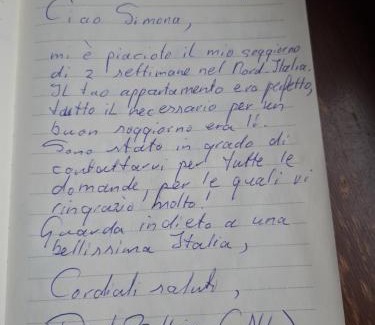 Ciao Simona,
mi è piaciuto il mio soggiorno
di 2 settimane nel Nord-Italia.
Il tuo appartamento era perfetto,
tutto il necessario per un
buon soggiorno era lì.
Sono stato in grado di
contattarvi per tutte le
domande, per le quali vi
ringrazio molto!
Guarda indietro a una
bellissima Italia,
Cordiali saluti,
(NL)